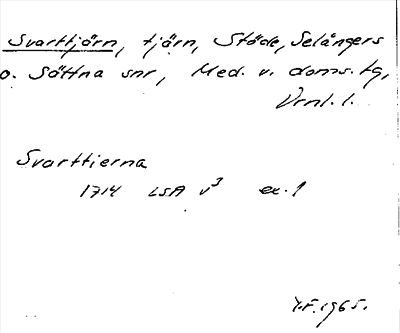 Svarttjärn, tjärn, Stöde, Selångers
o. Sättna snr, Med. v. doms. tg,
Vrnl. l.
Svarttierna
1714 LSA v3 ex. 1
Y.F. 1965.